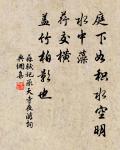 庭下如积水空明
水中藻
荇交横
盖竹柏影也
苏轼记承天寺夜游词
典网集